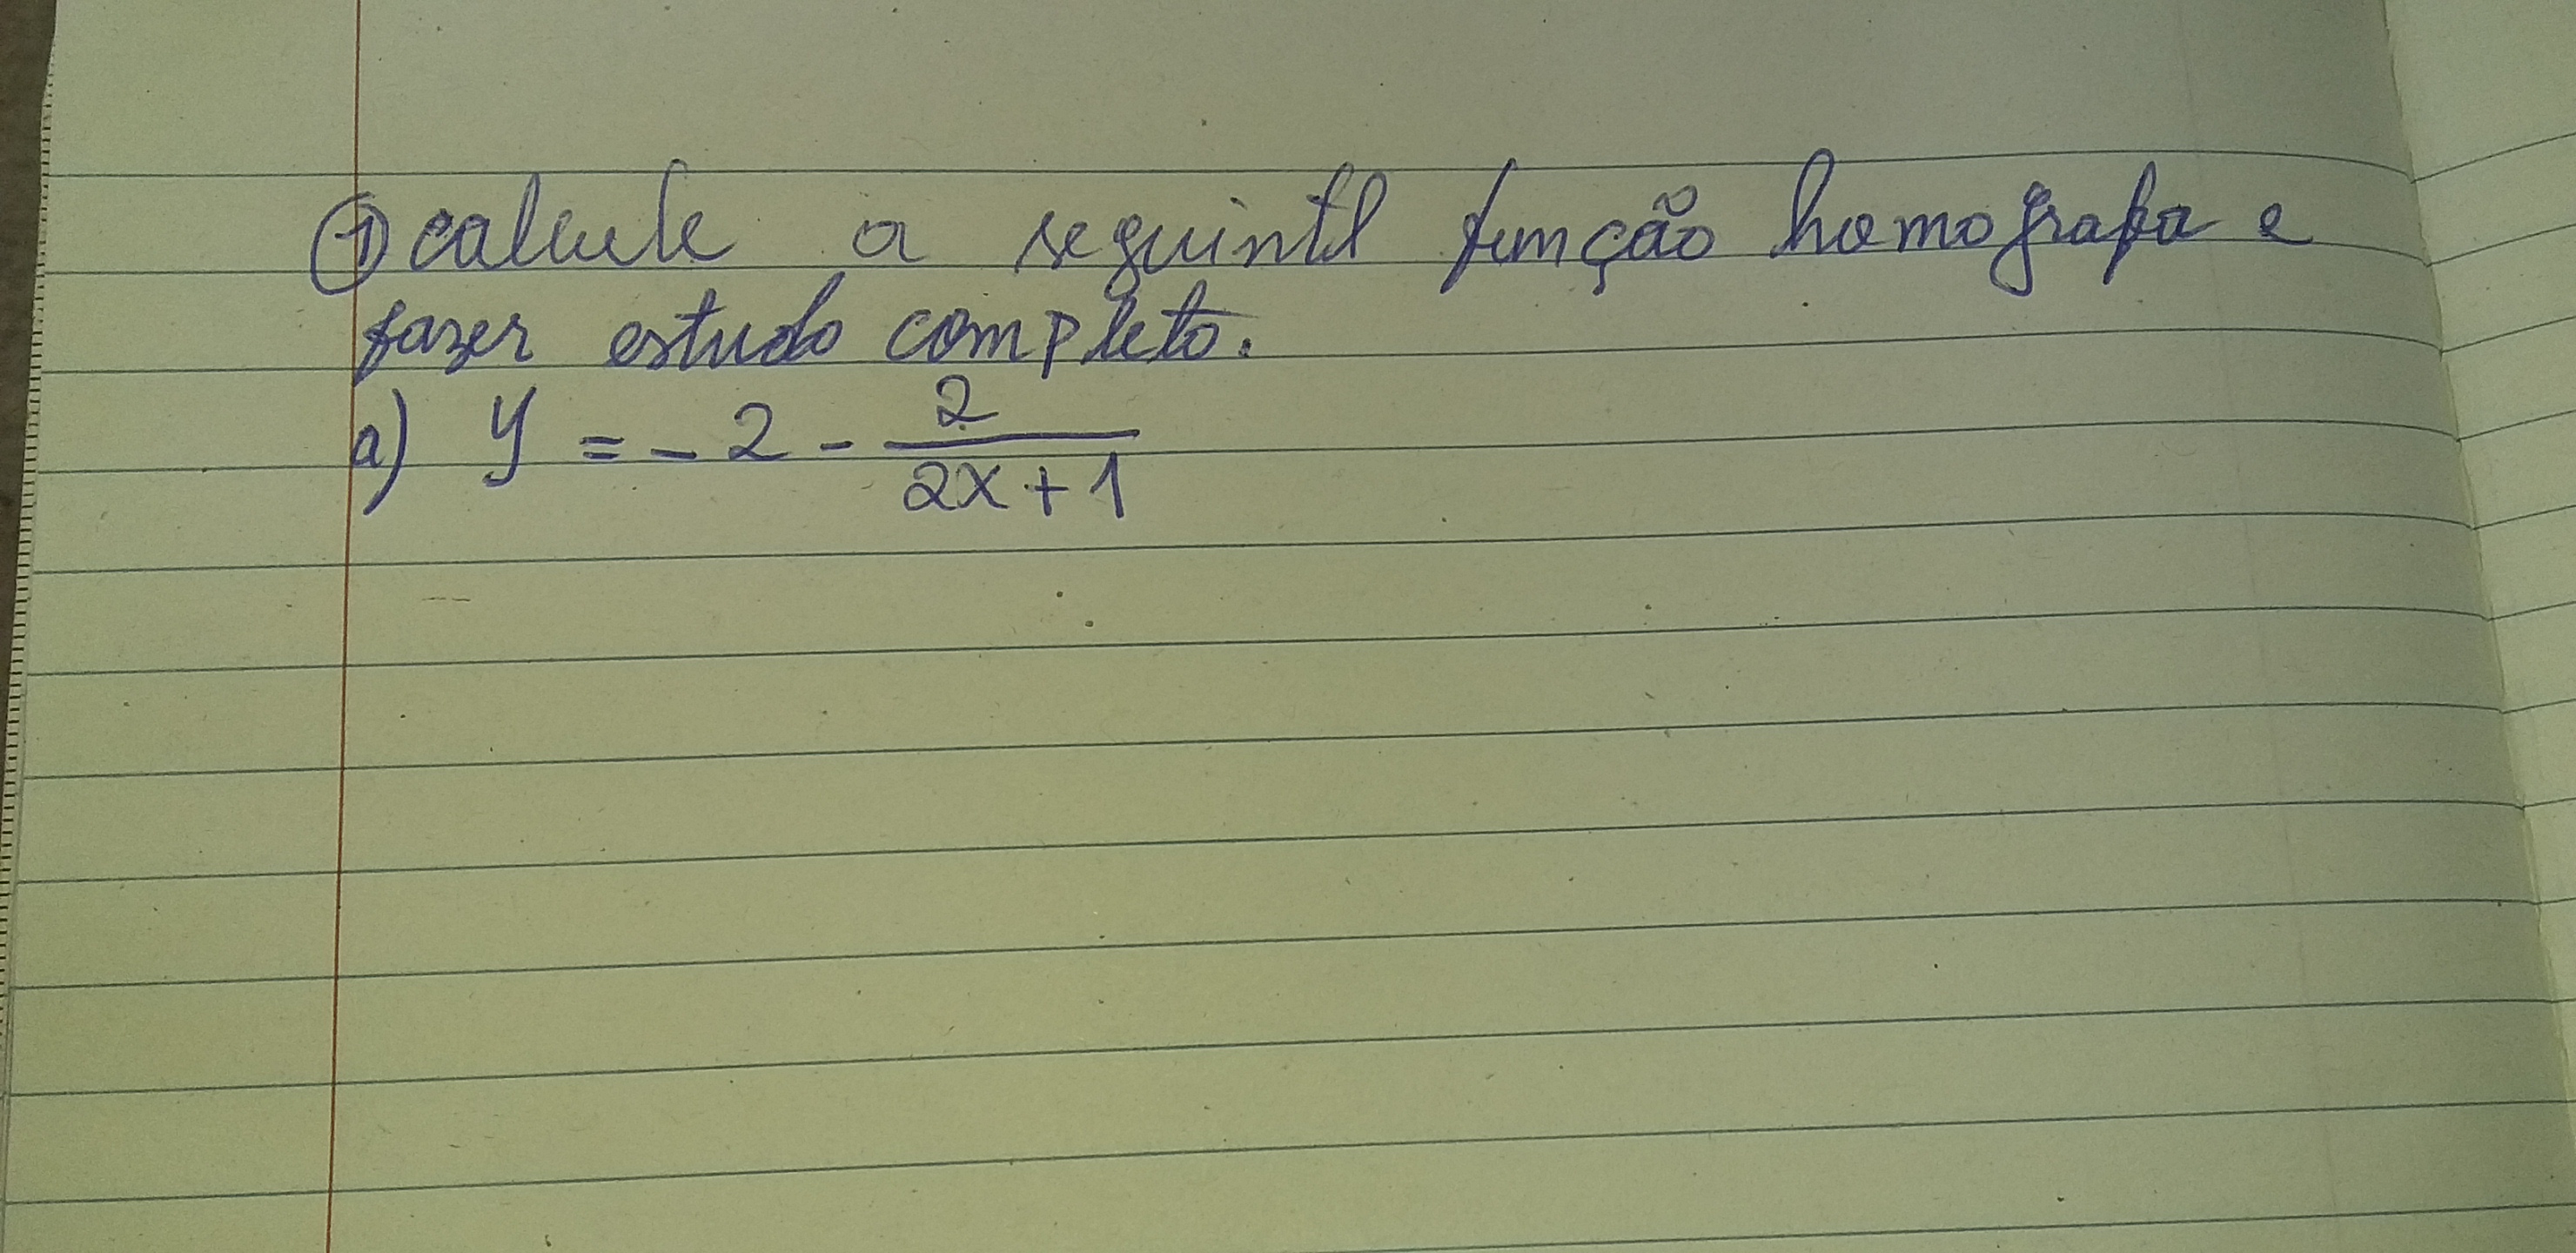 ① calcule a seguinte função homografa e
fazer estudo completo.
a) y = -2 - 2/(2x+1)